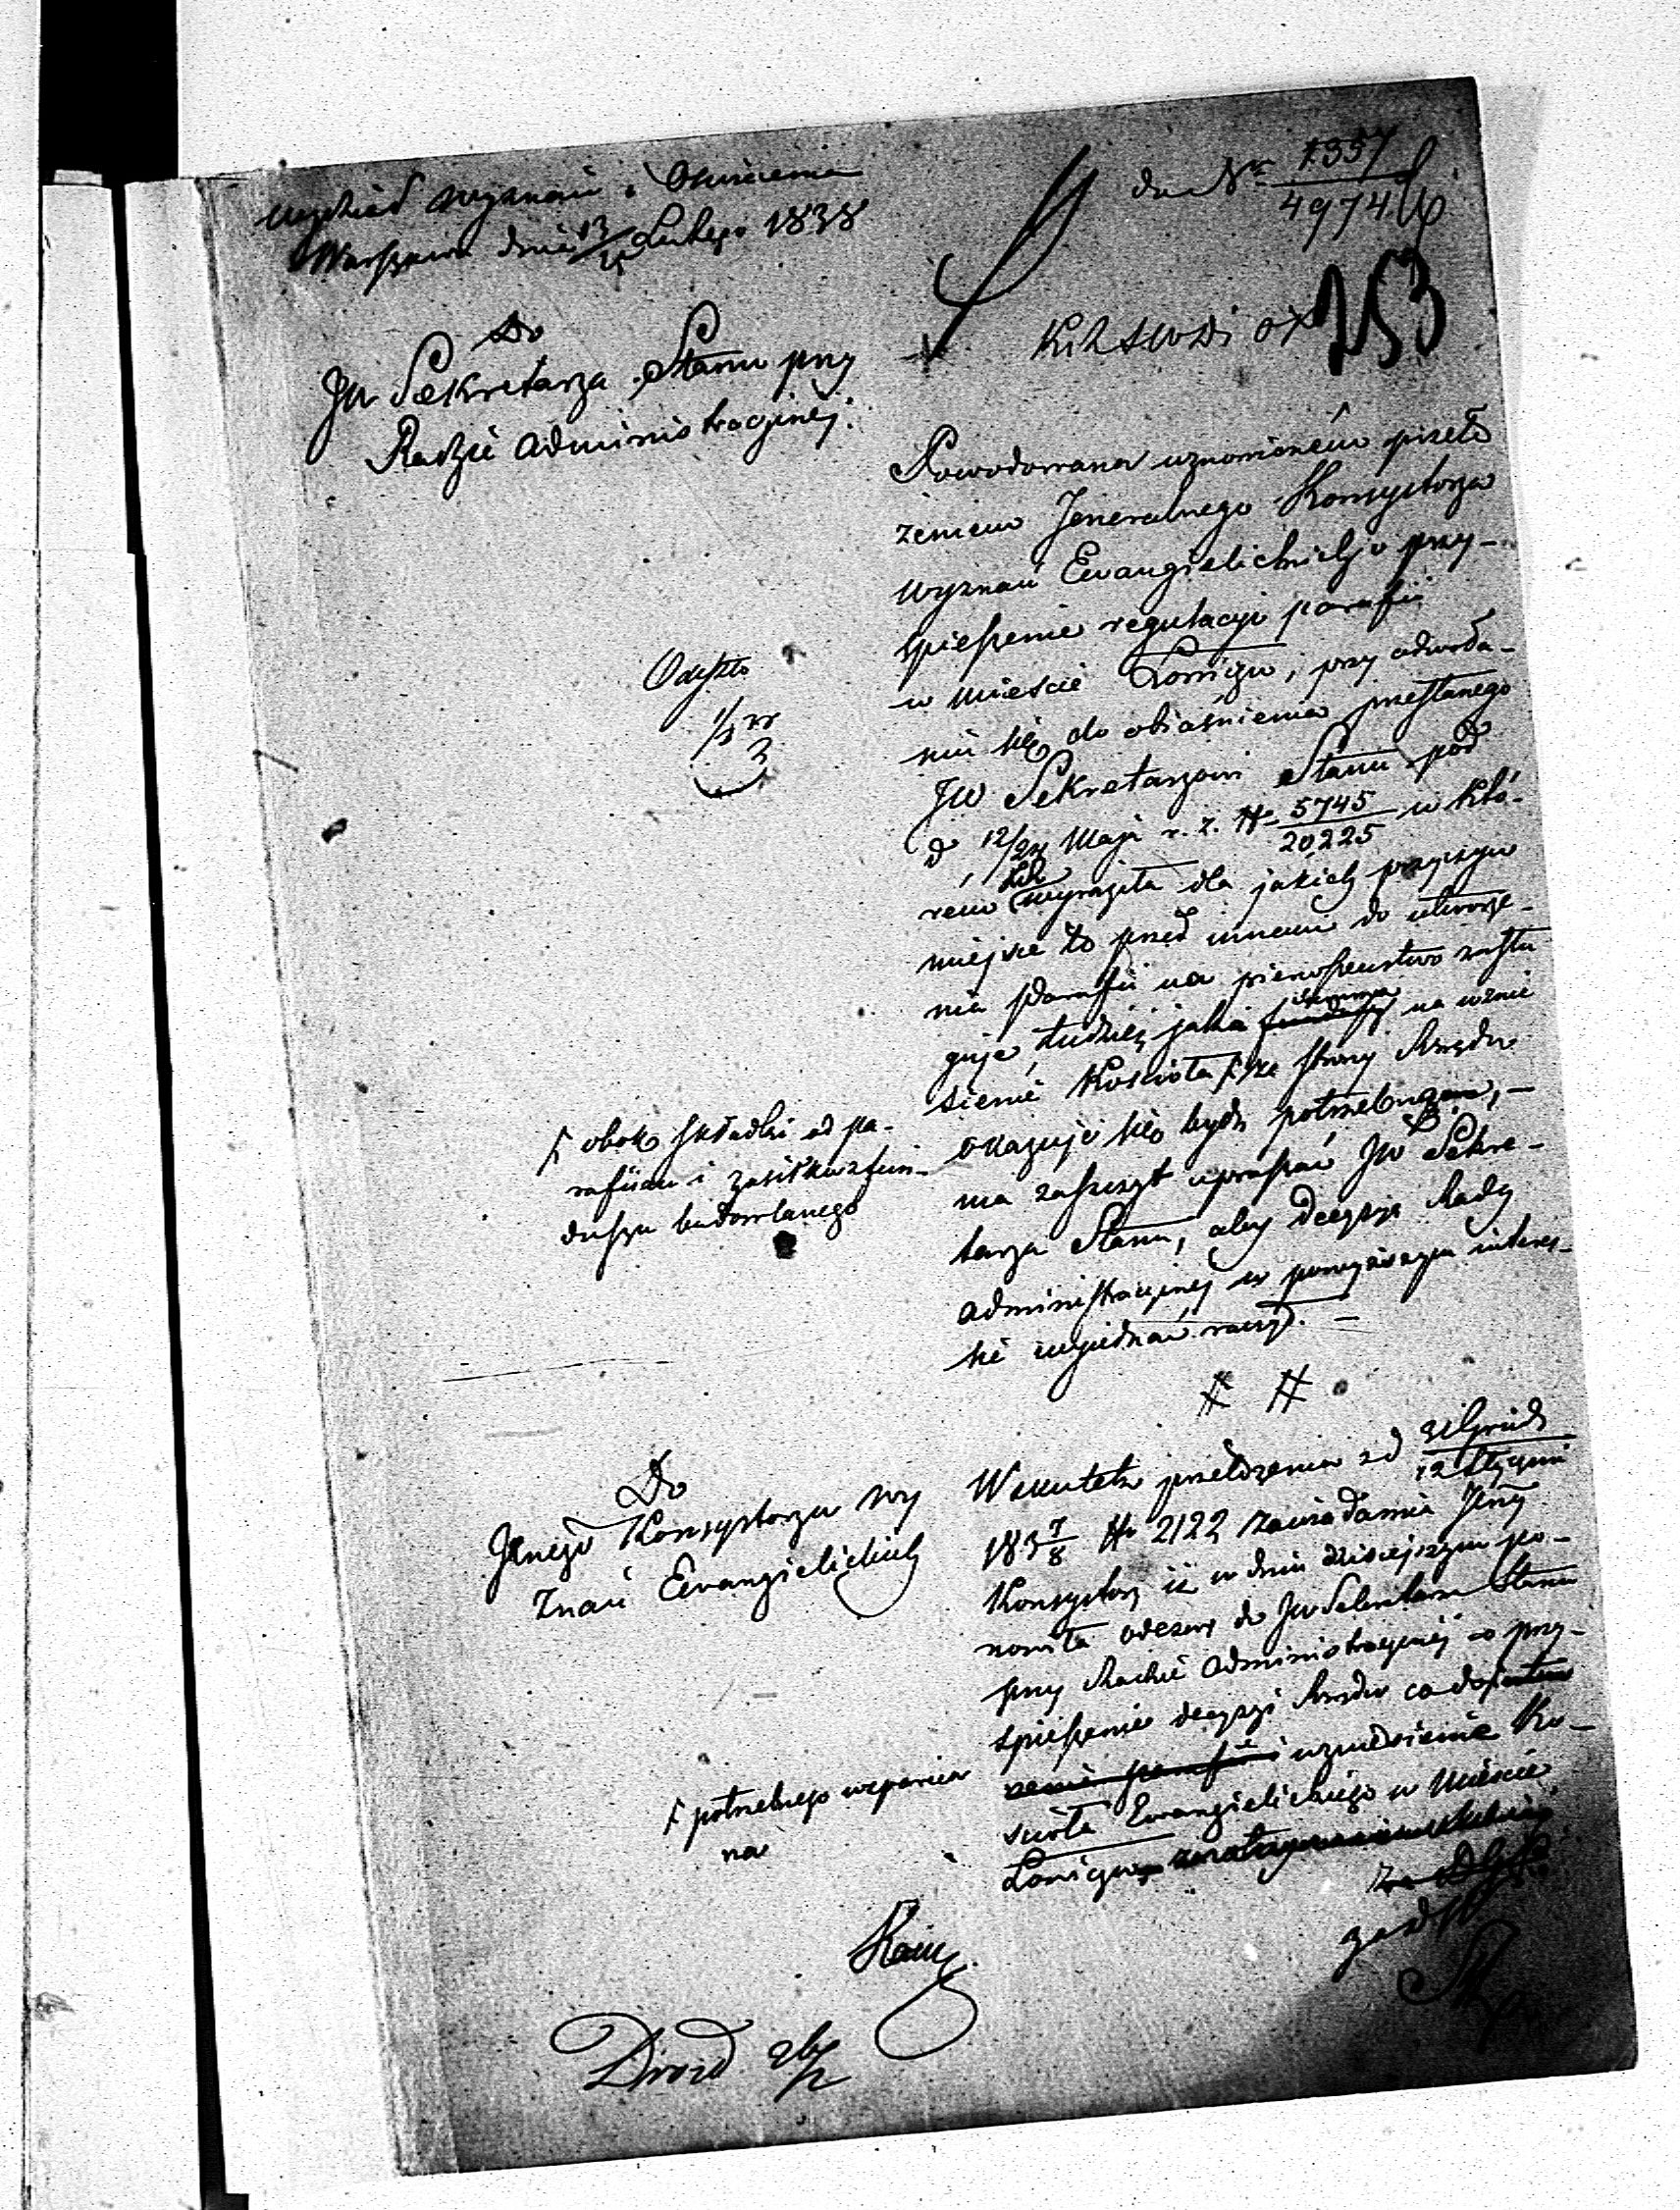 Wydział Wyznań i Oświecenia
Warszawa dnia 13/25 Lutego 1838
do Nr 1357/4974
253
Do
JW Sekretarza Stanu przy
Radzie Administracyjnej.
Odeszło
1/3
Powodowana wznowionem przeło
żeniem Jeneralnego Konsystorza
wyznań Ewangielickich o przy-
spieszenie regulacyi parafii
w mieście Łowiczu, przy odwoła-
niu się do obiaśnienia przesłanego
JW Sekretarzowi Stanu pod
d 12/24 Maja r. z. N 5745/20225 w któ-
rem wyraziła dla jakich przyczyn
miejsce to przed innemi do utworze-
nia parafii na pierwszeństwo zasłu
guje, tudzież jaka summa na wznie
sienie Kościoła ze strony Rządu
okazuje się bydź potrzebną, –
ma zaszczyt upraszać JW Sekre-
tarza Stanu, aby decyzję Rady
Administracyjnej w powyższym interes-
sie wyjednać raczył. –
obok składki od pa-
rafian i zasiłku z fun-
duszu budowlanego
Do
Jlnego Konsystorza Wy
znań Ewangielickich
W skutek przełożenia z d 31 Grud/12 Stycznia
1837/8 N 2122 zawiadamia Jlny
Konsystorz iż w dniu dzisiejszym po-
nowiła odezwę do JW Sekretarza Stanu
przy Radzie Administracyjnej o przy-
spieszenie decyzyi Rządu co do
wzniesienie Ko-
ścioła Ewangielickiego w mieście
Łowiczu
potrzebnego wsparcia
na